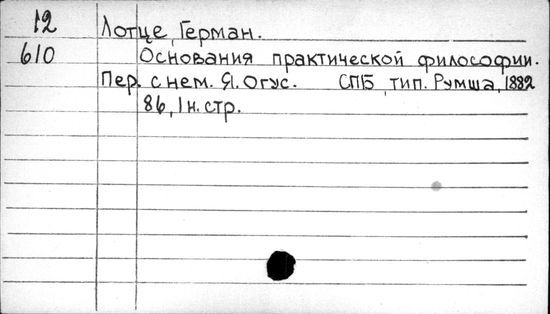 12 Лотце, Герман.
610 Основания практической философии.
Пер. с нем. Я. Огус. СПБ, тип. Румша, 1882
86, 1 н. стр.